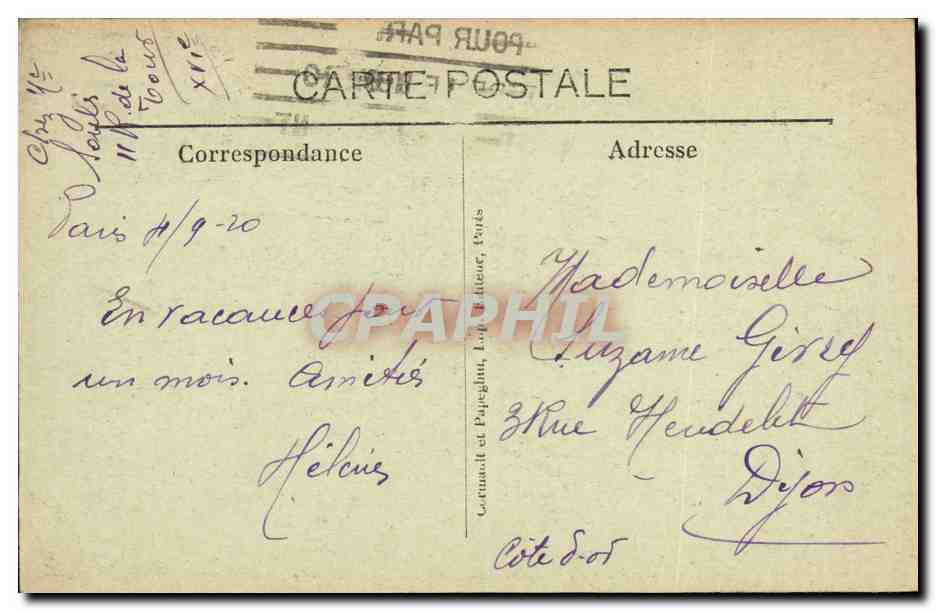 POUR PAR
CARTE POSTALE
Chez Mr
11 R. de la
Tour
XVIe
Correspondance
Paris 4/9-20
En vacance pour
un mois. Amitiés
Hélène
Cormault et Papeghin, Imp. Editeur, Paris
Adresse
Mademoiselle
Suzanne
3 Rue Heudelet
Dijon
Côte d'or
CPAPHIL